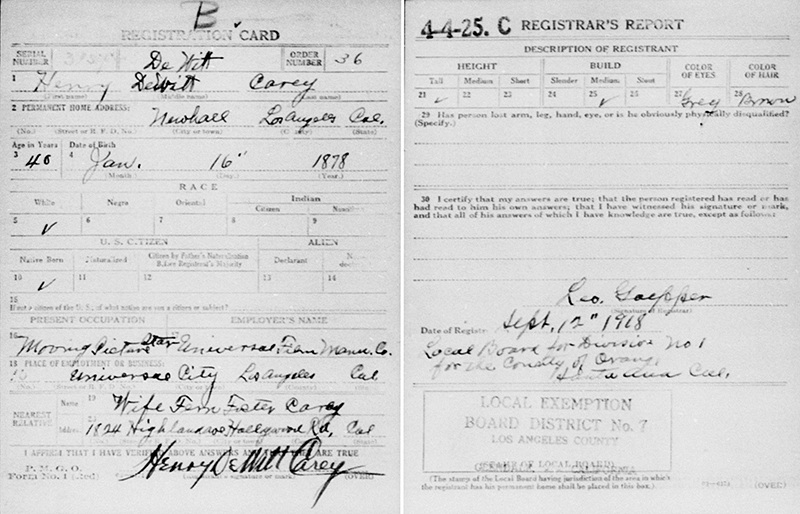 B
REGISTRATION CARD
SERIAL NUMBER
De Witt
ORDER NUMBER 36
1 Henry DeWitt Carey
(First name) (Middle name) (Last name)
2 PERMANENT HOME ADDRESS:
Newhall Los Angeles Cal.
(No.) (Street or R. F. D. No.) (City or town) (County) (State)
Age in Years Date of Birth
3 40 4 Jan. 16" 1878
(Month.) (Day.) (Year.)
RACE
White Negro Oriental Indian
Citizen
5 ✓ 6 7 8 9
U. S. CITIZEN ALIEN
Native Born Naturalized Citizen by Father's Naturalization Before Registrant's Majority Declarant
10 ✓ 11 12 13 14
15
If not a citizen of the U. S., of what nation are you a citizen or subject?
PRESENT OCCUPATION EMPLOYER'S NAME
16 Moving Picture Star Universal Film Manu. Co.
18 PLACE OF EMPLOYMENT OR BUSINESS:
Universal City Los Angeles Cal
(No.) (Street or R. F. D. No.) (City or town) (County) (State)
NEAREST RELATIVE
Name 19 Wife Fern Foster Carey
Address 20 1824 Highland Hollywood Cal
I AFFIRM THAT I HAVE VERIFIED ABOVE ANSWERS AND THAT THEY ARE TRUE
P. M. G. O.
Form No. 1 (Red)
Henry DeWitt Carey
(Registrant's signature or mark) (OVER)
4-4-25. C REGISTRAR'S REPORT
DESCRIPTION OF REGISTRANT
HEIGHT BUILD COLOR OF EYES COLOR OF HAIR
Tall Medium Short Slender Medium Stout
21 ✓ 22 23 24 25 ✓ 26 27 Grey 28 Brown
29 Has person lost arm, leg, hand, eye, or is he obviously physically disqualified?
(Specify.)
30 I certify that my answers are true; that the person registered has read or has
had read to him his own answers; that I have witnessed his signature or mark,
and that all of his answers of which I have knowledge are true, except as follows:
Leo. Goepper
(Signature of Registrar)
Date of Registration Sept. 12" 1918
Local Board for Division No 1
for the County of Orange
Santa Ana Cal.
LOCAL EXEMPTION
BOARD DISTRICT No. 7
LOS ANGELES COUNTY
CALIFORNIA
(The stamp of the Local Board having jurisdiction of the area in which
the registrant has his permanent home shall be placed in this box.)
(OVER)